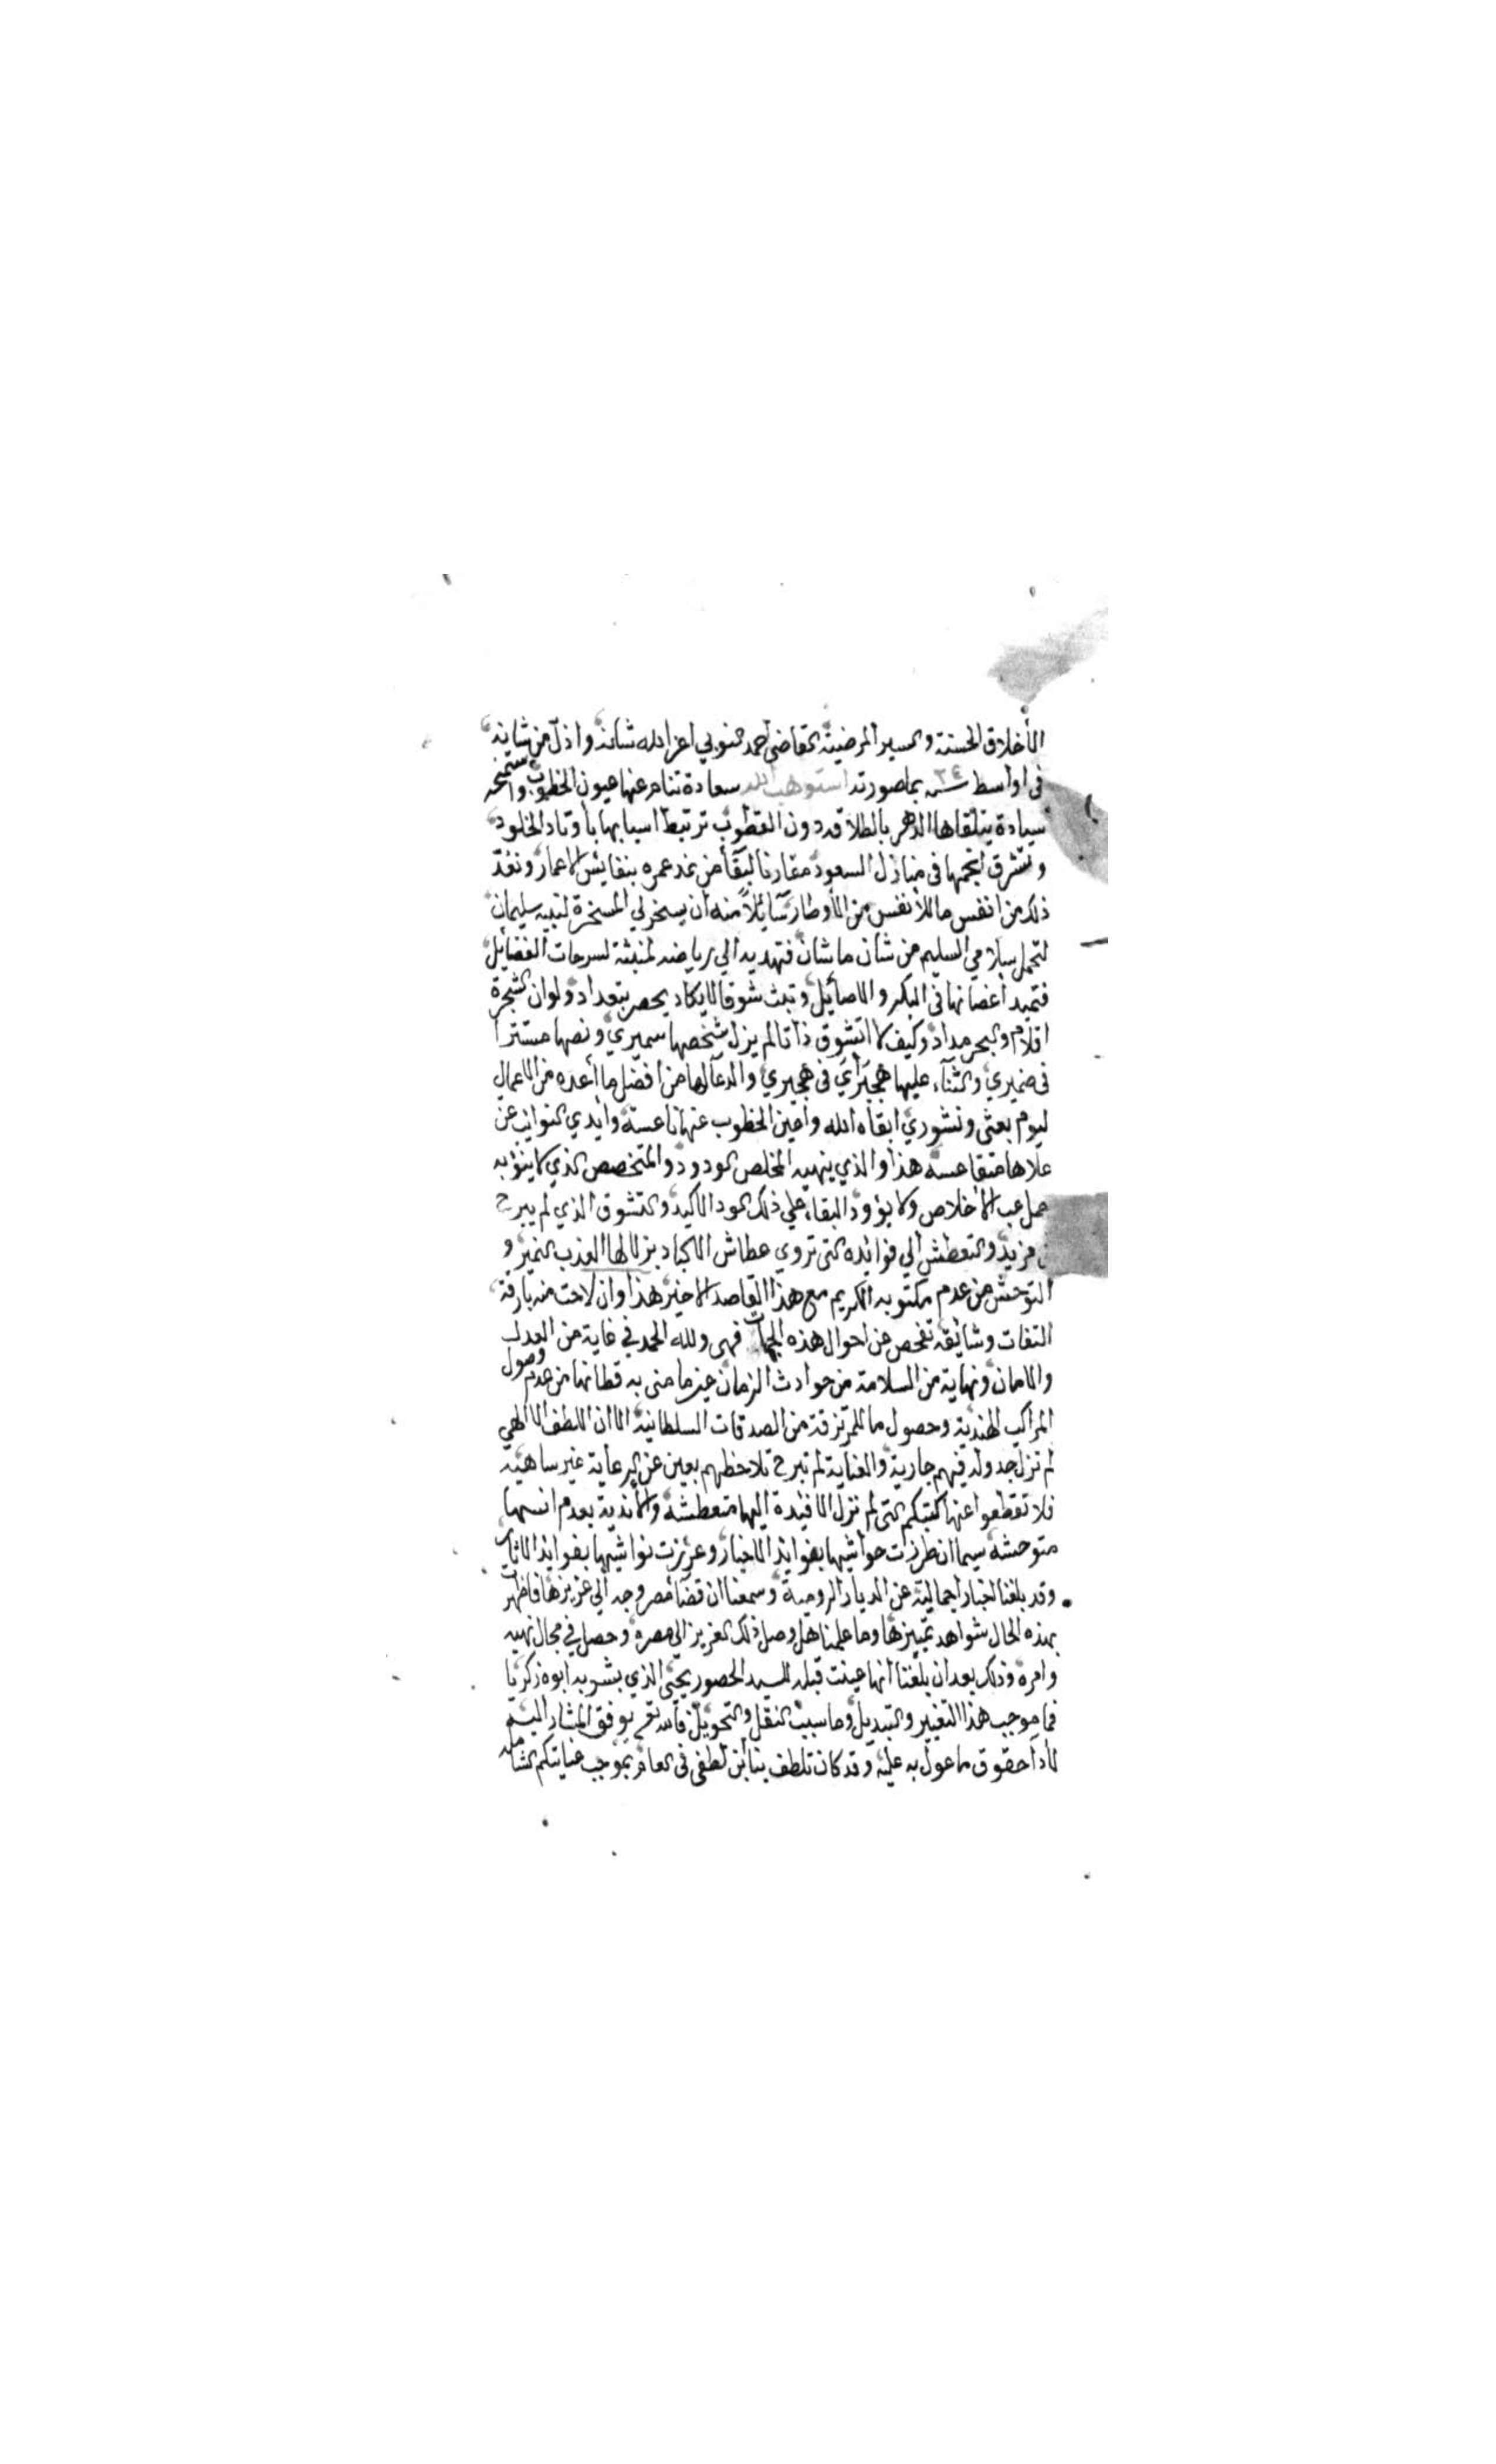 الأخلاق الحسنة والسير المرضية القاضي احمد حنوبي اعز الله شانه واذل من شانه
في اواسط سنة ٣٤ بما صورته استوهب الله سعادة تنام عنها عيون الخطوب واستمنحه
سيادة يتلقاها الدهر بالطلاقة دون القطوب ترتبط اسبابها بأوتاد الخلود
وتشرق انجمها في منازل السعود مقارنا لبقآ من غد عمره بنفايس الاعمار ونعد
ذلك من انفس ما للأنفس من الأوطار سآئلاً منه أن يسخر لي المسخرة لنبيه سليمان
لتحمل سلامي السليم من شان ما شان فتهديه الي رياضه المنبثة لسرحات الفضائل
فتميد أغصانها في البكر والاصائيل وتبث شوقا لا يكاد يحصر بتعداد ولو ان الشجرة
اقلام والبحر مداد وكيف لا اتشوق ذاتا لم يزل شخصها سميري ونصها مستترا
في ضميري والثنآء عليها هجيراي في هجيري والدعآ لها من افضل ما أعده من الاعمال
ليوم بعثي ونشوري ابقاه الله واعين الخطوب عنها ناعسة وأيدي النوائب عن
علاها متقاعسة هذا والذي ينهيه المخلص الودود والمتخصص الذي لا ينؤ به
حمل عب الأخلاص ولا يؤود البقاء علي ذلك الود الاكيد والتشوق الذي لم يبرح
في مزيد والتعطش الي فوائده التي تروي عطاش الاكباد بزلالها العذب النمير و
التوحش من عدم مكتوبه الكريم مع هذا القاصد الاخير هذا وان لاحت منه بارقة
التفات وشائقة تفحص عن احوال هذه الجهات فهي ولله الحمد في غاية من العدل
والامان ونهاية من السلامة من حوادث الزمان غير ما مني به قطانها من عدم وصول
المراكب الهندية وحصول ما للمرتزقة من الصدقات السلطانية الا ان اللطف الالهي
لم تزل جدوله فيهم جارية والعناية لم تبرح تلاحظهم بعين عن الرعاية غير ساهية
فلا تقطعوا عنها كتبكم التي لم تزل الافئدة اليها متعطشة والأندية بعدم انسها
متوحشة سيما ان طرزت حواشيها بفوايد الاخبار وعززت نواشيها بفوايد الاثار
وقد بلغنا اخبار اجمالية عن الديار الرومية وسمعنا ان قضآ مصر وجه الي عزيزها فاظهرت
بهذه الحال شواهد تمييزها وما علمنا هل وصل ذلك العزيز الي مصره وحصل في مجال نهيه
وامره وذلك بعد ان بلغنا انها عينت قبله للسيد الحصور يحيي الذي بشر به ابوه زكريا
فما موجب هذا التغيير والتبديل وما سبب النقل والتحويل فالله تعم يوفق المشار اليه
لادآ حقوق ما عول به عليه وقد كان تلطف بنا ابن لطفي في العام بموجب عنايتكم الشاملة